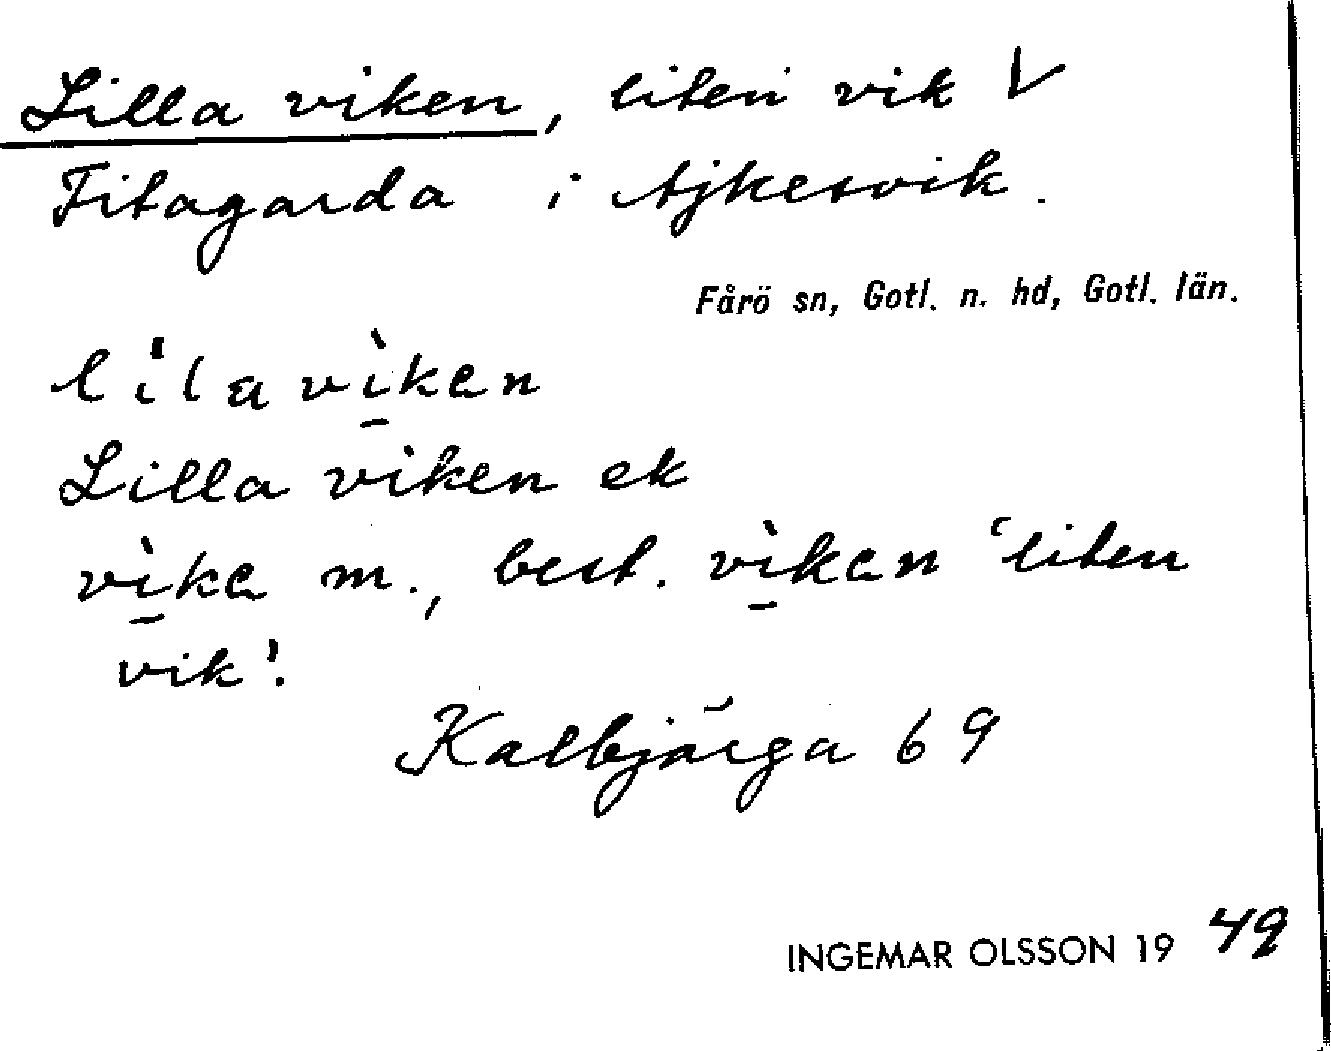 Lilla viken, liten vik V
Fitagarda i Ajkesvik.
Fårö sn, Gotl. n. hd, Gotl. län.
lila vìken
Lilla viken ek
vìka m., best. vìkan 'liten
vik'.
Kalbjärga 69
INGEMAR OLSSON 19 49